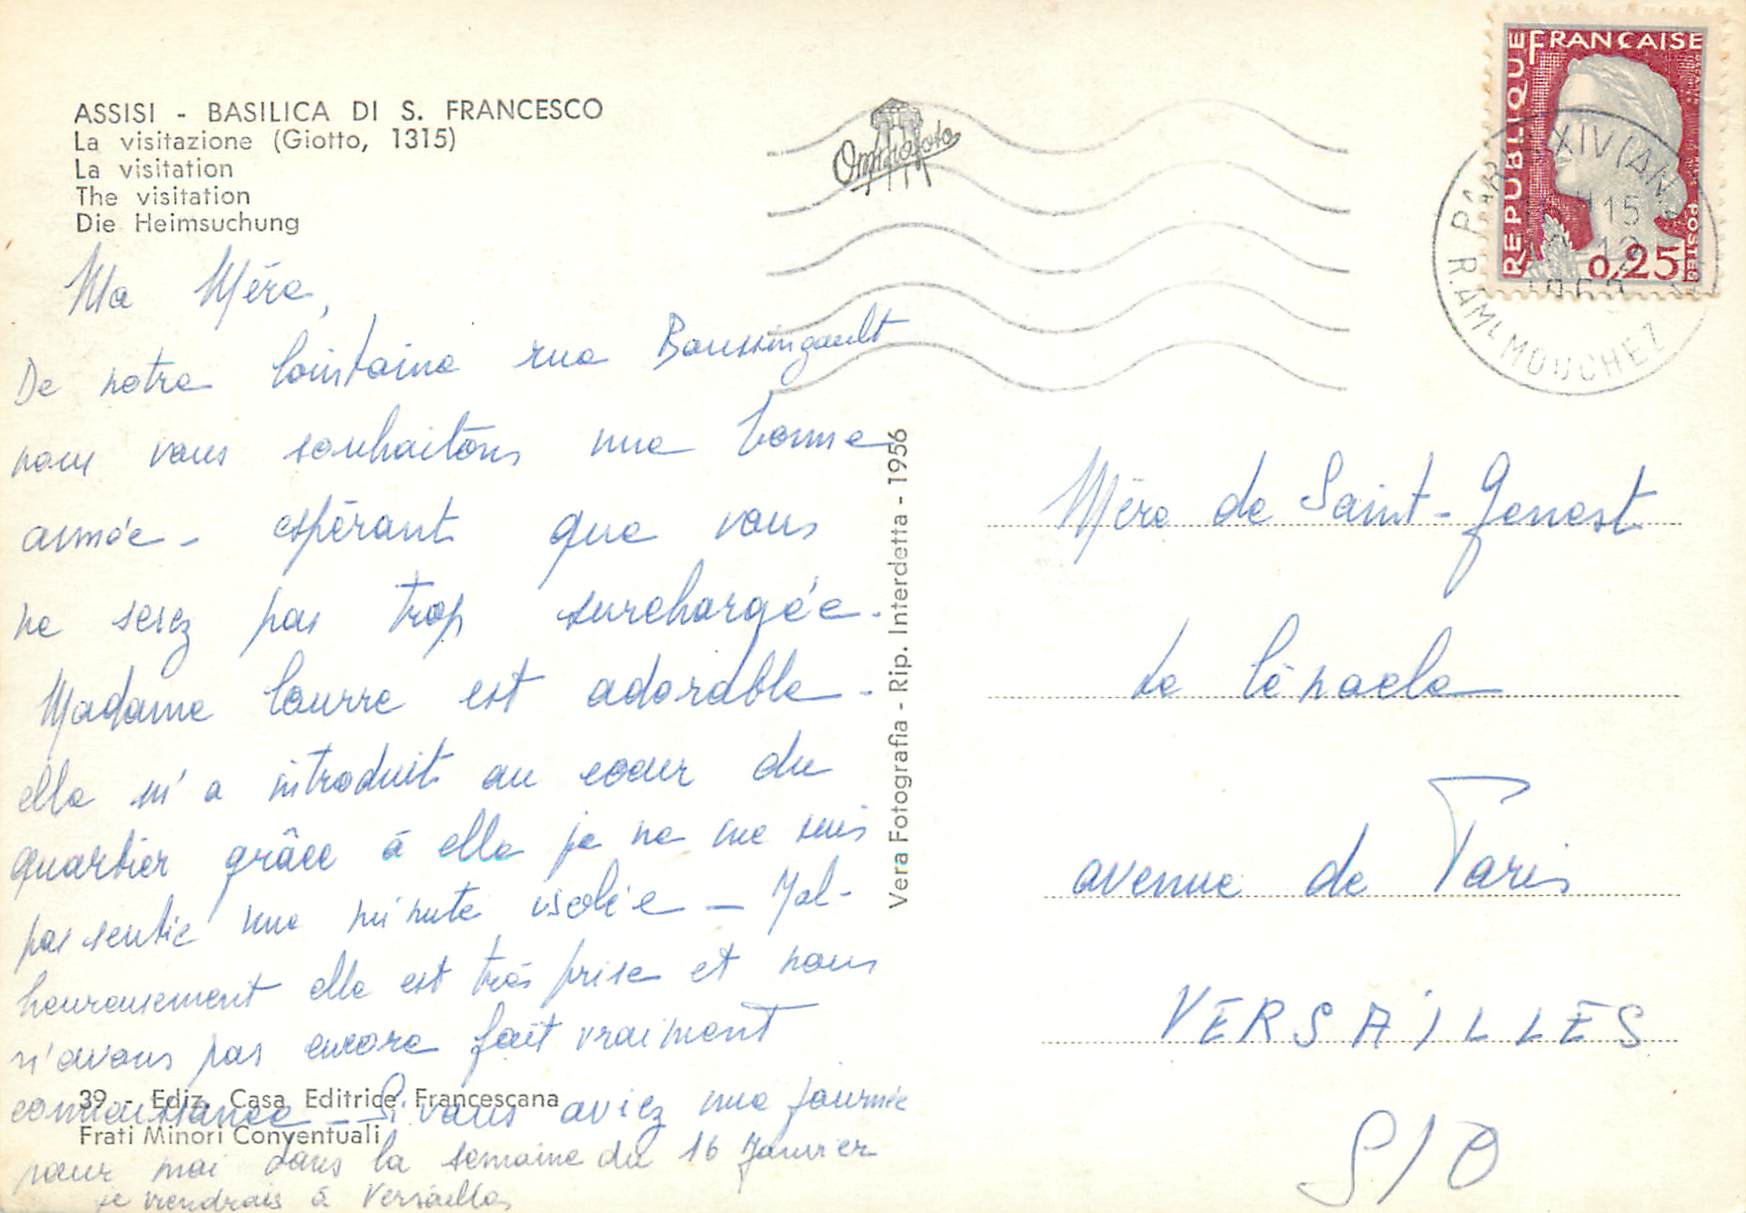 ASSISI - BASILICA DI S. FRANCESCO
La visitazione (Giotto, 1315)
La visitation
The visitation
Die Heimsuchung
Ommafoto
RÉPUBLIQUE FRANÇAISE
POSTES
0,25
PARIS XIV
15
12
R. AML MOUCHEZ
Ma Mère,
De notre lointaine rue Boussingault
nous vous souhaitons une bonne
année - espérant que vous
ne serez pas trop surchargée.
Madame Lourre est adorable -
elle m'a introduit au coeur du
quartier grâce à elle je ne me suis
pas sentie une minute isolée - Mal-
heureusement elle est très prise et nous
n'avons pas encore fait vraiment
connaissance - Si vous aviez une journée
pour moi dans la semaine du 16 Janvier
je viendrais à Versailles
39 - Ediz. Casa Editrice Francescana
Frati Minori Conventuali
Vera Fotografia - Rip. Interdetta - 1956
Mère de Saint-Genest
Le Cénacle
avenue de Paris
VERSAILLES
S/O